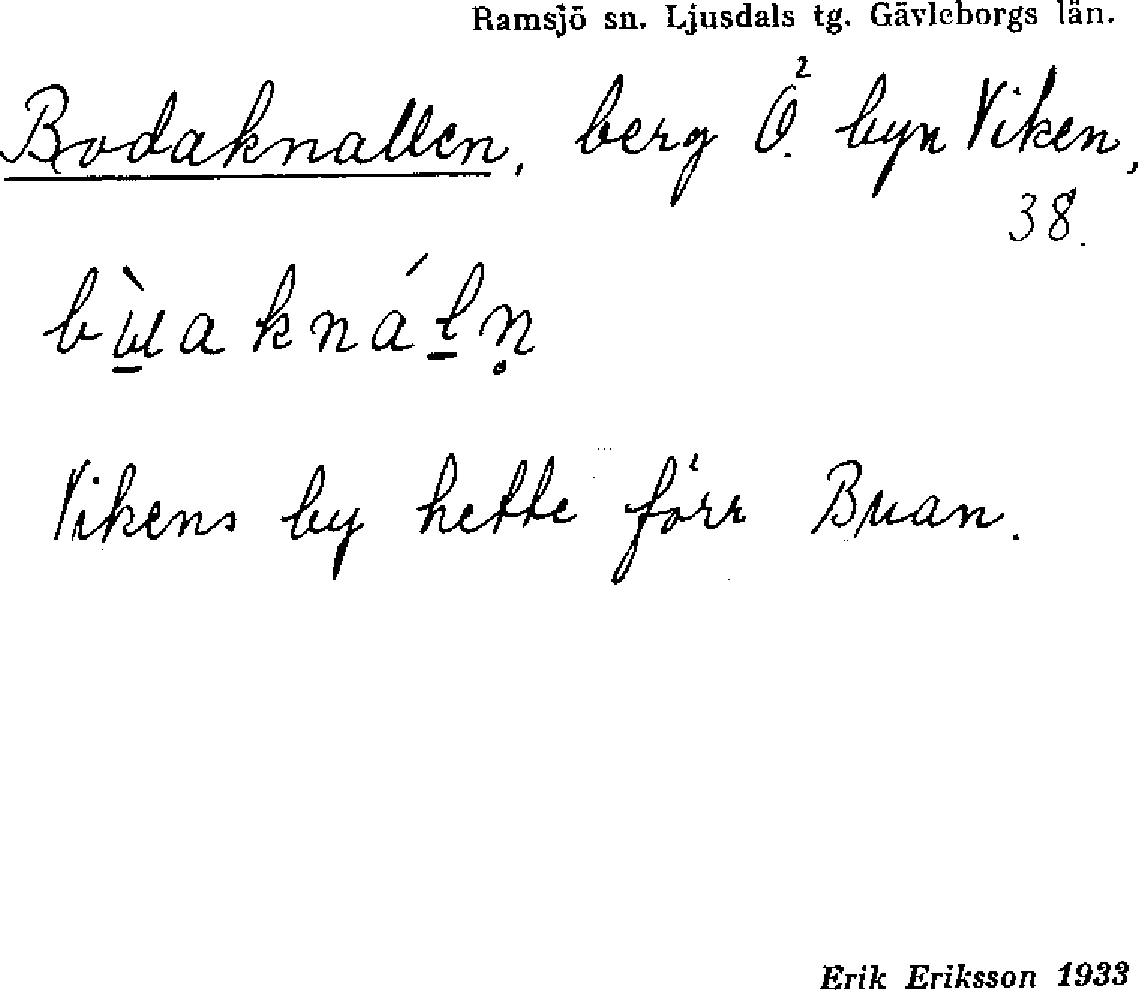 Ramsjö sn. Ljusdals tg. Gävleborgs län.
Bodaknallen, berg Ö. byn Viken,
38.
bù̲a kná ł̲n̥
Vikens by hette förr Buan.
Erik Eriksson 1933